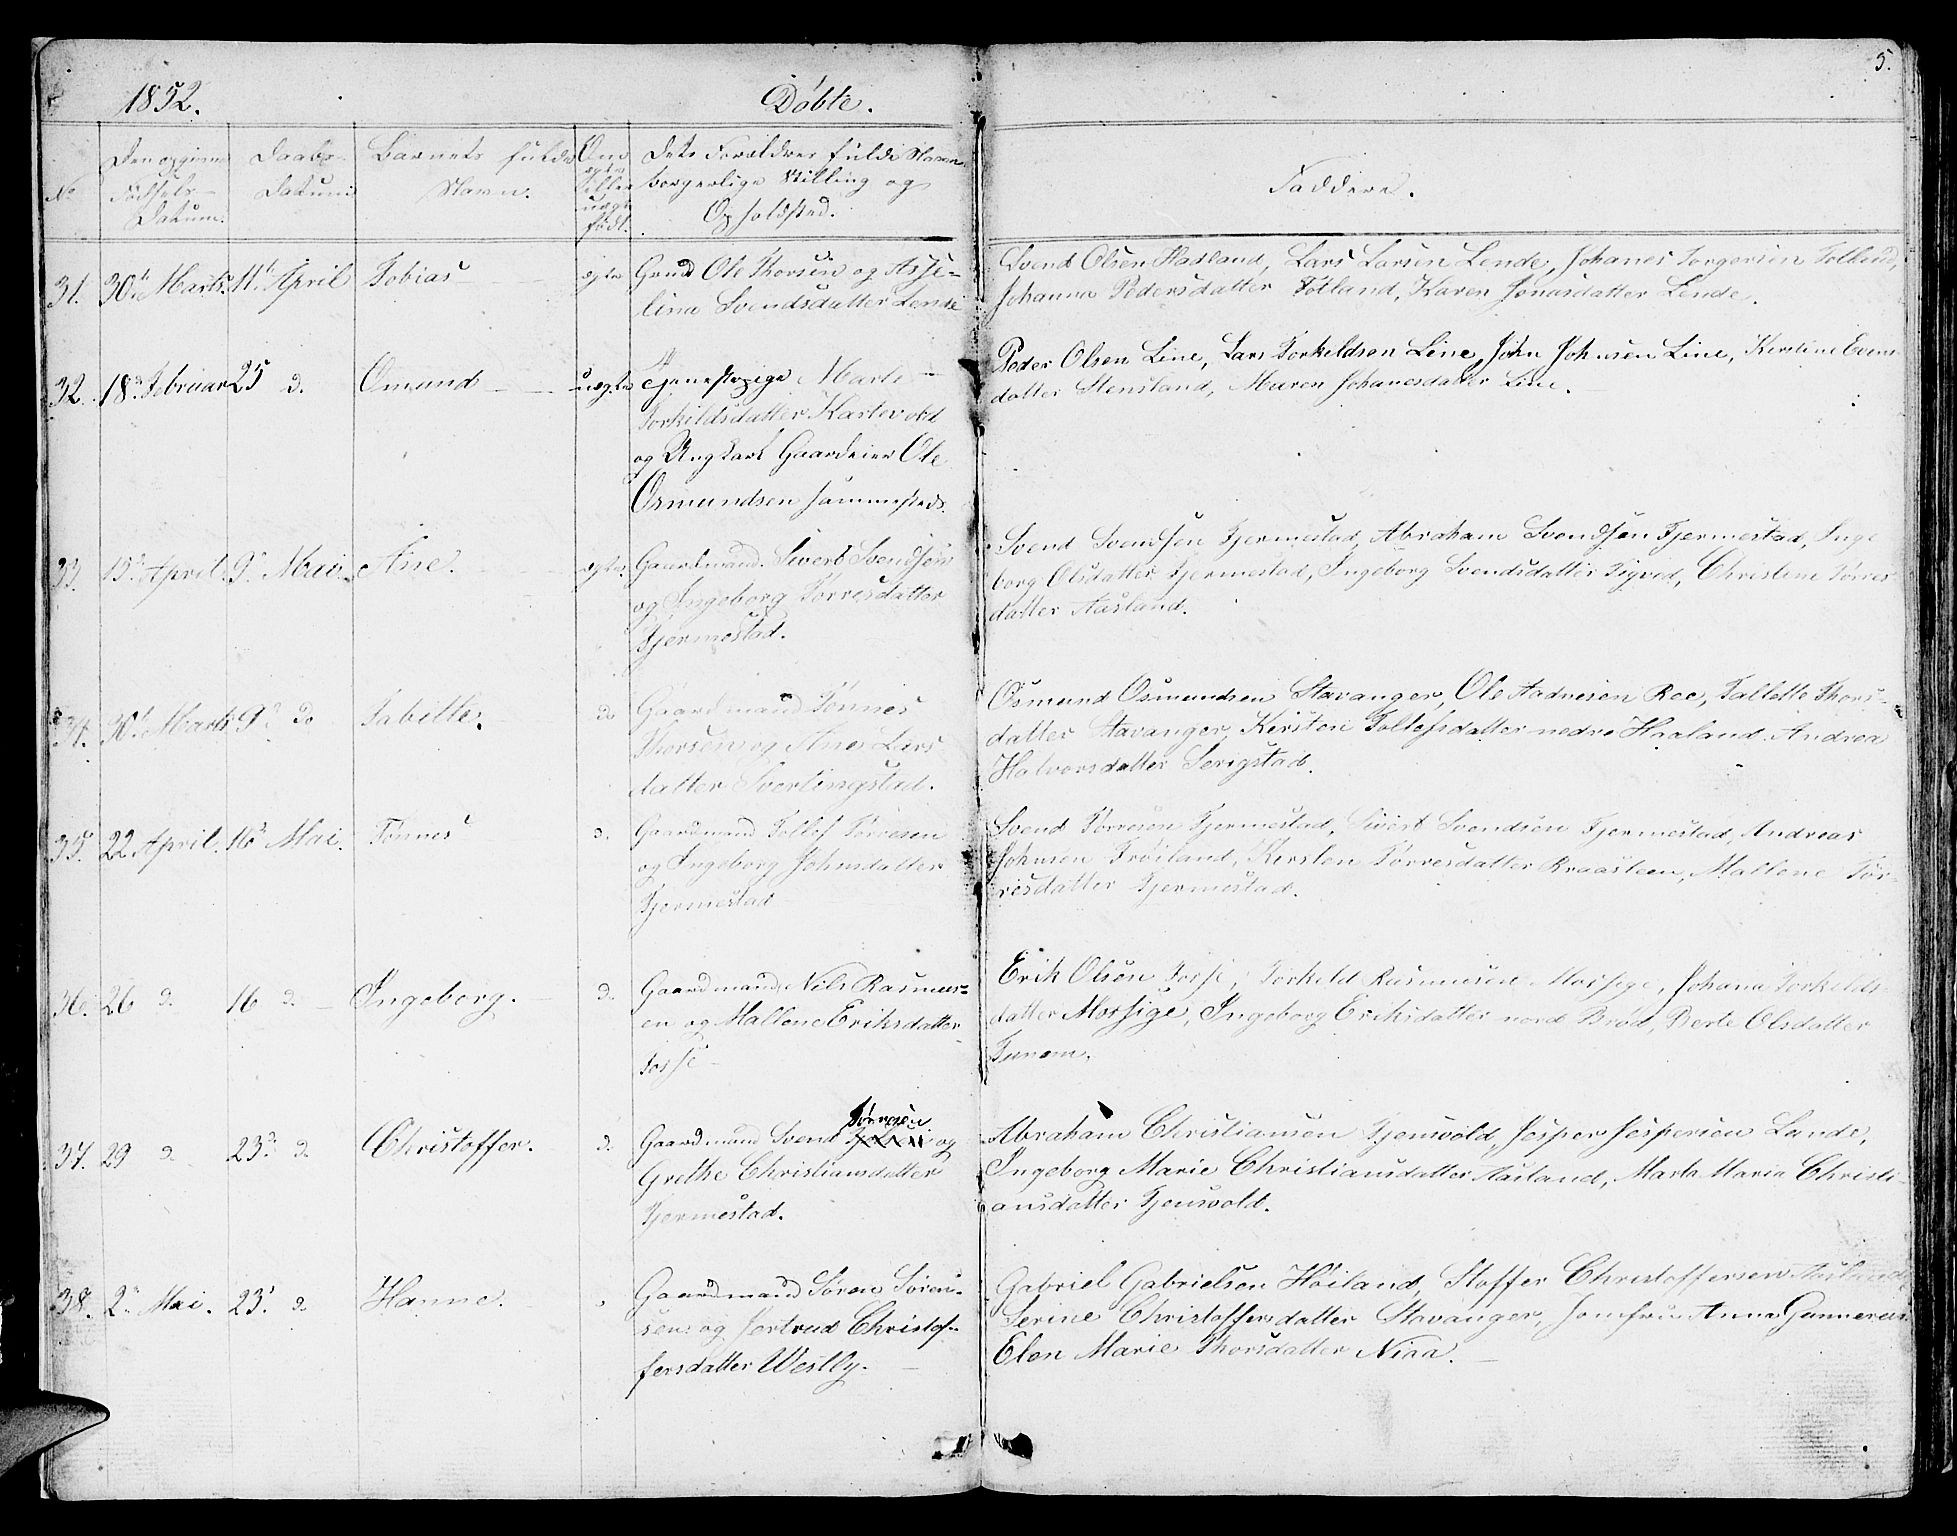 5.
1852.
Døbte.
No
Den opgivne Fødsels-Datum.
Daabs-Datum.
Barnets fulde Navn.
Om ægte eller uægte født.
Dets Forældres fulde Navn borgerlige Stilling og Opholdsted.
Faddere.
31. 30te Marts. 11te April Tobias ægte
Gmd Ole Thorsen og Asse-
lina Svendsdatter Lende
Svend Olsen Hadland, Lars Larsen Lende, Johanes Torgersen Tolland,
Johanna Pedersdatter Totland, Karen Jonasdatter Lende.
32. 18de Februar 25 d. Omund uægte
Tjenestepige Marte
Torkildsdatter Kartevold
og Ungkarl Gaardeier Ole
Osmundsen sammesteds.
Peder Olsen Line, Lars Torkeldsen Line, John Johnsen Line, Kirstine Evens-
datter Stensland, Maren Johanesdatter Line.
33. 15de April. 9de Mai. Ane. ægte.
Gaardmand. Sivert Svendsen
og Ingeborg Tørresdatter
Tjermestad.
Svend Svendsen Tjermestad, Abraham Svendsen Tjermestad, Inge
borg Olsdatter Tjermestad, Ingeborg Svendsdatter Tigved, Christine Tørres
datter Aasland.
34. 30te Marts 9de do Tabitte. do
Gaardmand Tønnes
Thorsen og Ane Lars
datter Sverlingstad.
Osmund Osmundsen Stavanger, Ole Aadnesen Roe, Tallette Thors-
datter Stavanger, Kirsten Tollefsdatter nedre Haaland. Andrea
Halvorsdatter Serigstad.
35. 22 April. 16de Mai. Tønnes d.
Gaardmand Tollef Tørresen
og Ingeborg Johnsdatter
Tjermestad
Svend Tørresen Tjermestad, Sivert Svendsen Tjermestad, Andreas
Johnsen Trøiland, Kirsten Tørresdatter Braasteen, Mallene Tør-
resdatter Tjermestad.
36. 26 d. 16 d. Ingeborg. d.
Gaardmand Nils Rasmus-
en og Mallene Eriksdatter
Fosse
Erik Olsen Fosse, Torkeld Rasmusen Mossige, Johana Torkelds-
datter Mossige, Ingeborg Eriksdatter nord Brød, Berte Olsdatter
Tunem.
37. 29 d. 23de d. Christoffer. d.
Tørresen
Gaardmand Svend og
Grethe Christiansdatter
Tjermestad.
Abraham Christiansen Tjensvold, Jesper Jespersen Lunde,
Ingeborg Marie Christiansdatter Aasland, Marta Maria Christi-
ansdatter Tjensvold.
38. 2de Mai. 23de d. Hanne.
Gaardmand Søren Søren-
sen og Jertrud Christof-
fersdatter Westly.
Gabriel Gabrielsen Høiland, Stoffer Christoffersen Aasland,
Serine Christoffersdatter Stavanger, Jomfru Anna Gunnersen
Elen Marie Thorsdatter Niaa.